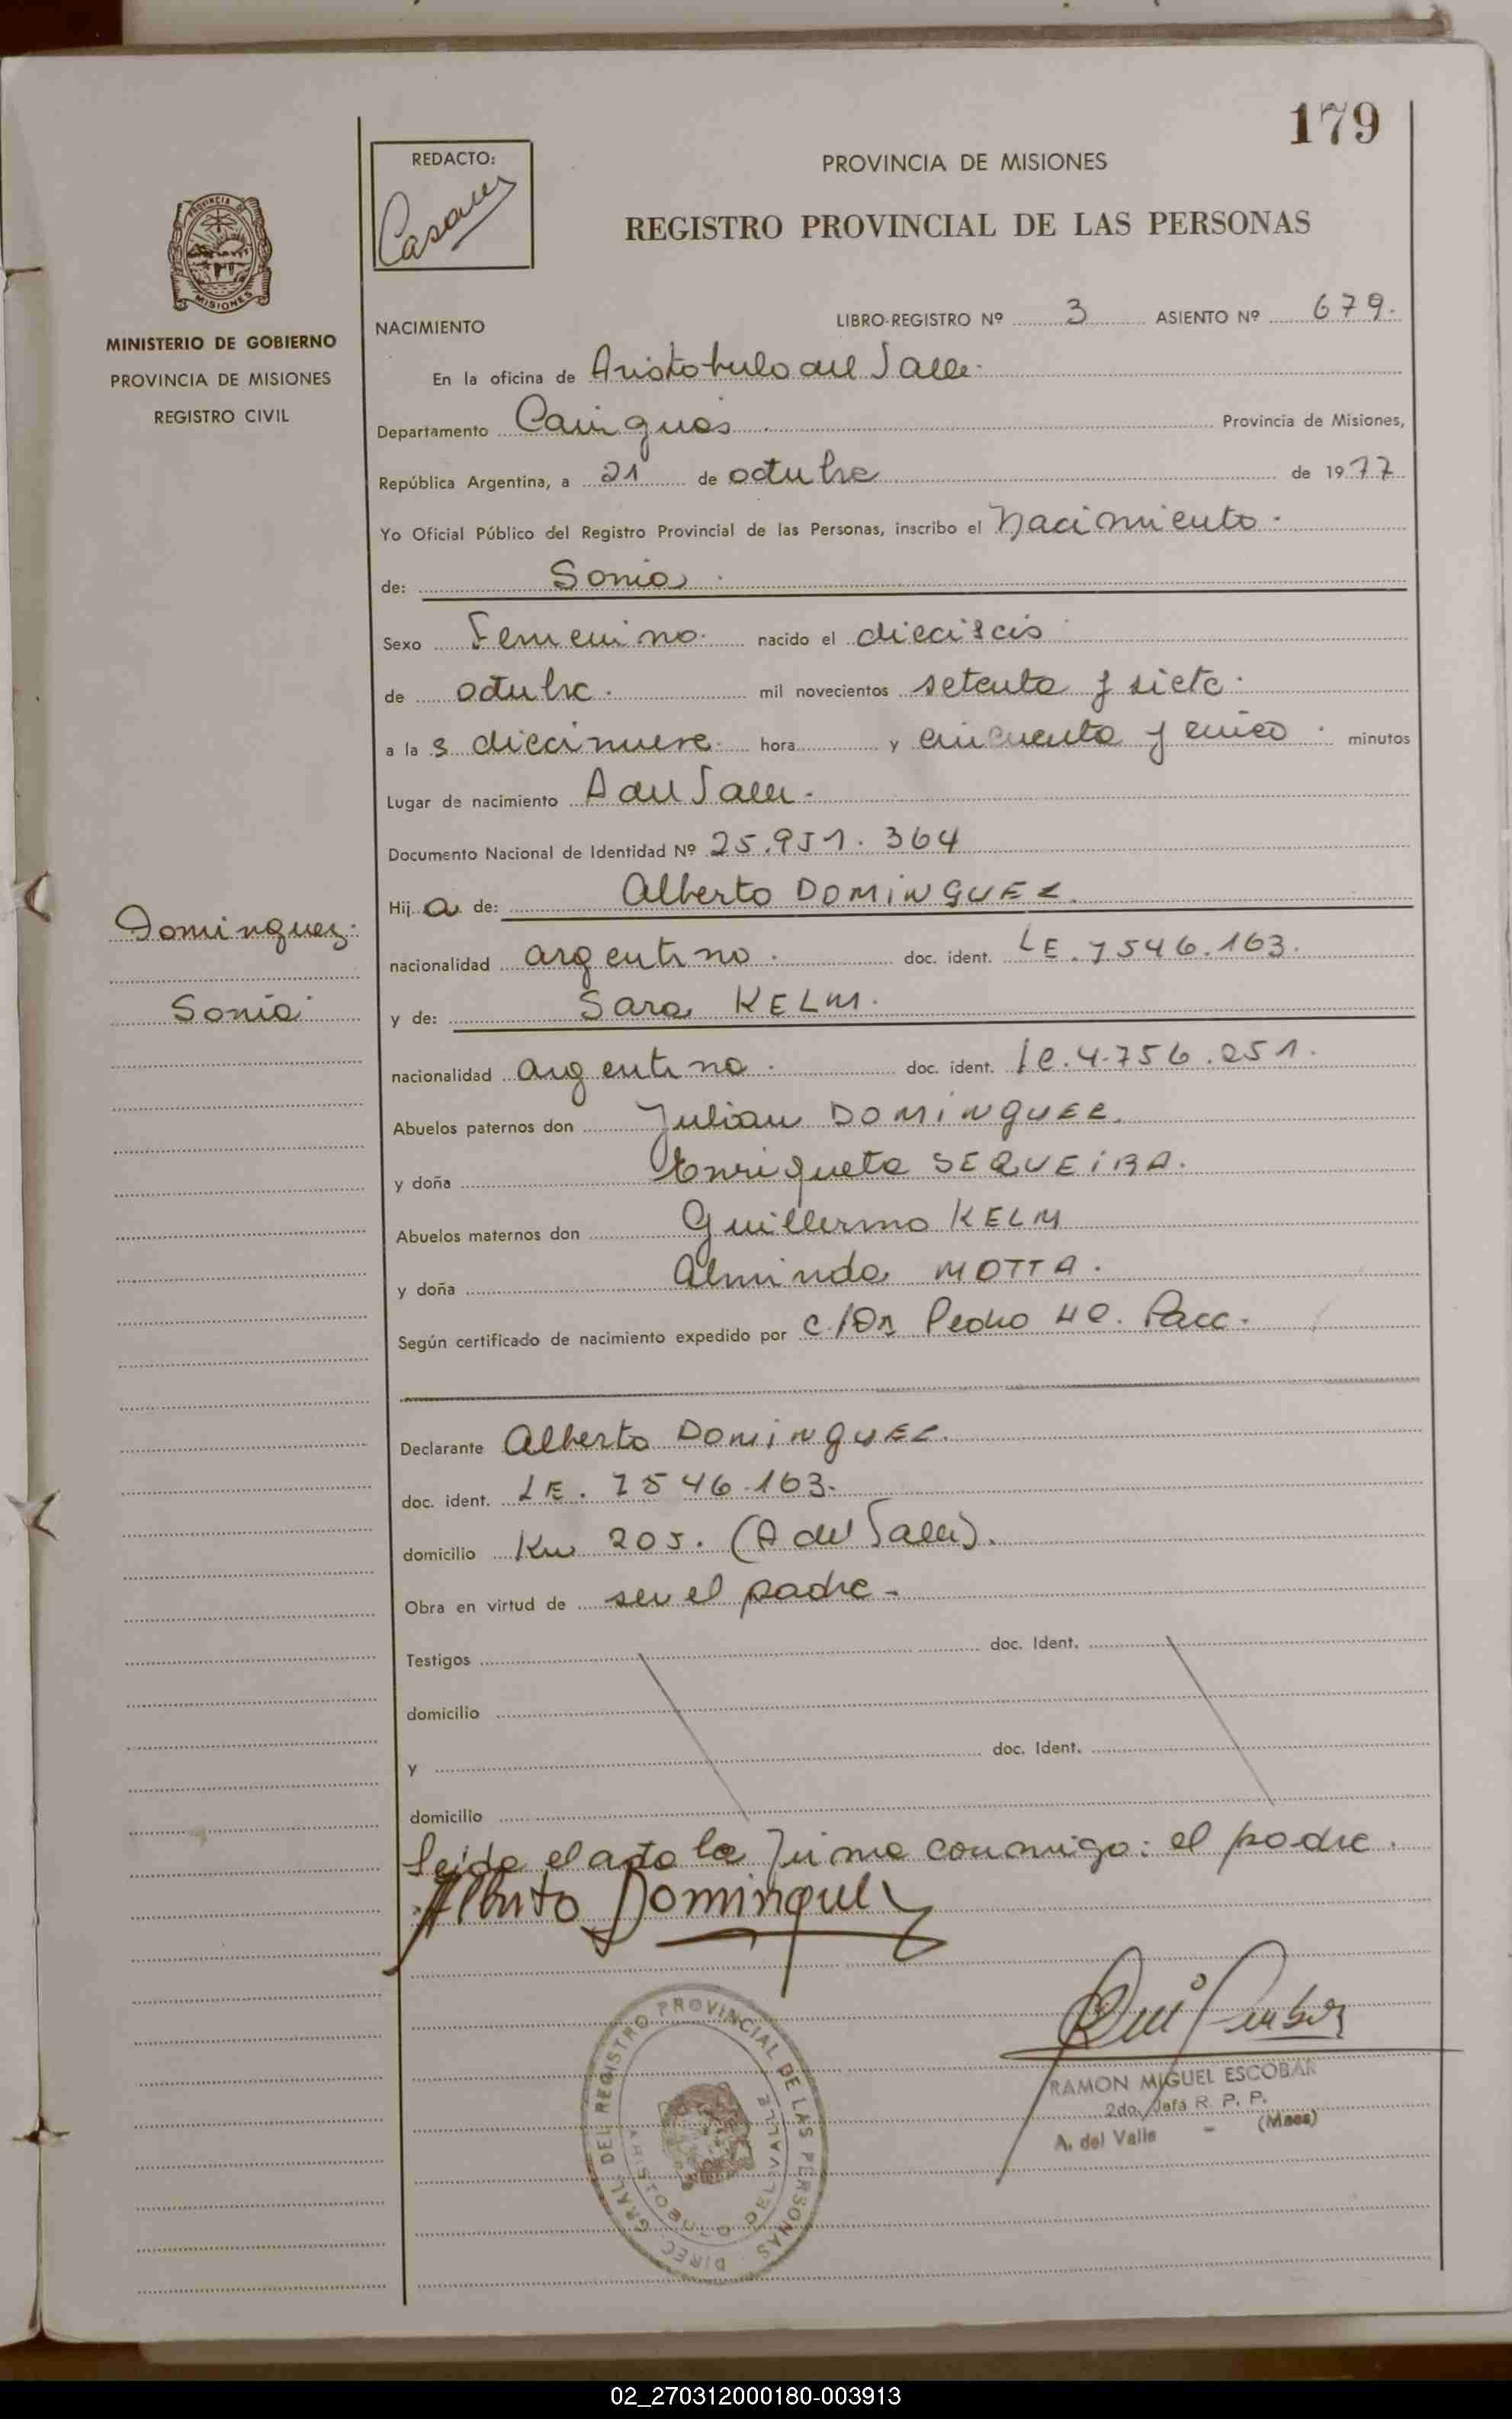 179
REDACTO:
Casares
PROVINCIA DE MISIONES
REGISTRO PROVINCIAL DE LAS PERSONAS
PROVINCIA DE
MISIONES
MINISTERIO DE GOBIERNO
PROVINCIA DE MISIONES
REGISTRO CIVIL
NACIMIENTO LIBRO-REGISTRO Nº 3 ASIENTO Nº 679.
En la oficina de Aristobulo del Valle.
Departamento Cainguás Provincia de Misiones,
República Argentina, a 21 de octubre de 1977
Yo Oficial Público del Registro Provincial de las Personas, inscribo el Nacimiento.
de: Sonia.
Sexo Femenino. nacido el dieciseis
de octubre. mil novecientos setenta y siete.
a la s diecinueve. hora y cincuenta y cinco. minutos
Lugar de nacimiento A del Valle.
Documento Nacional de Identidad Nº 25.951.364
Hij a de: Alberto DOMINGUEZ.
Dominguez.
nacionalidad argentino. doc. ident. LE. 7546.163.
Sonia
y de: Sara KELM.
nacionalidad argentina. doc. ident. lc. 4.756.251.
Abuelos paternos don Julian DOMINGUEZ.
y doña Enriqueta SEQUEIRA.
Abuelos maternos don Guillermo KELM
y doña Alminda MOTTA.
Según certificado de nacimiento expedido por c/Dr Pedro
Declarante Alberto DOMINGUEZ.
doc. ident. LE. 7546.163.
domicilio Km 205. (A del Valle).
Obra en virtud de ser el padre.
Testigos doc. Ident.
domicilio
y doc. Ident.
domicilio
leida el acta la firma conmigo: el padre.
Alberto Dominguez
DIREC. GRAL. DEL REGISTRO PROVINCIAL DE LAS PERSONAS
ARISTOBULO DEL VALLE
RAMON MIGUEL ESCOBAR
2do. Jefe R. P. P.
A. del Valle - (Mnes)
02_270312000180-003913